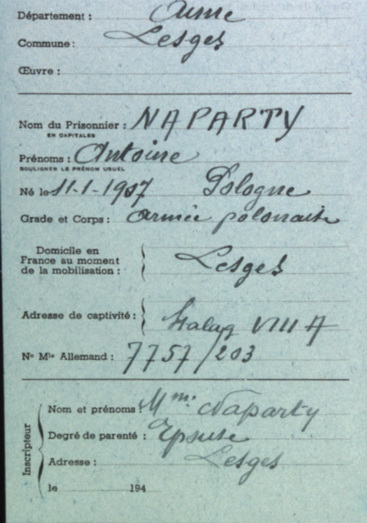 Département : Aisne
Commune : Lesges
Œuvre :
Nom du Prisonnier : NAPARTY
EN CAPITALES
Prénoms : Antoine
SOULIGNER LE PRÉNOM USUEL
Né le 11-1-1907 Pologne
Grade et Corps : armée polonaise
Domicile en
France au moment
de la mobilisation : Lesges
Adresse de captivité : Stalag VIII A
Nº Mle Allemand : 7757/203
Inscripteur
Nom et prénoms : Mme Naparty
Degré de parenté : Epouse
Adresse : Lesges
le 194